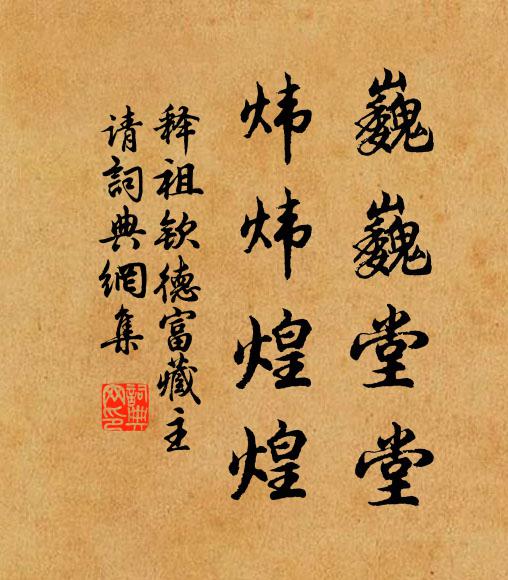 巍巍堂堂
炜炜煌煌
释祖钦德富藏主
请詞典網集
詞典
网印